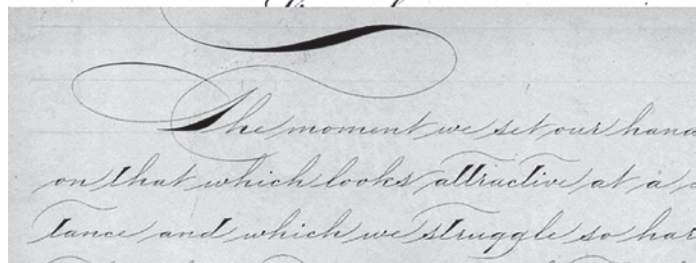 The moment we set our hand
on that which looks attractive at a
tance and which we struggle so har